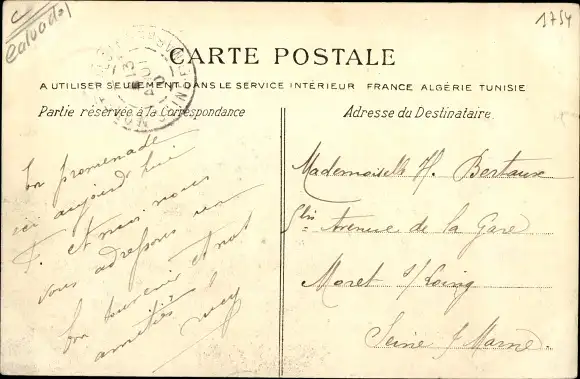 Calvados
1754
CARTE POSTALE
A UTILISER SEULEMENT DANS LE SERVICE INTÉRIEUR FRANCE ALGÉRIE TUNISIE
Partie réservée à la Correspondance
Adresse du Destinataire
En promenade
ici aujourd'hui
F. et moi nous
vous adressons un
bon souvenir et nos
amitiés
Mademoiselle H. Bertaux
5bis Avenue de la Gare
Moret s/Loing
Seine & Marne.